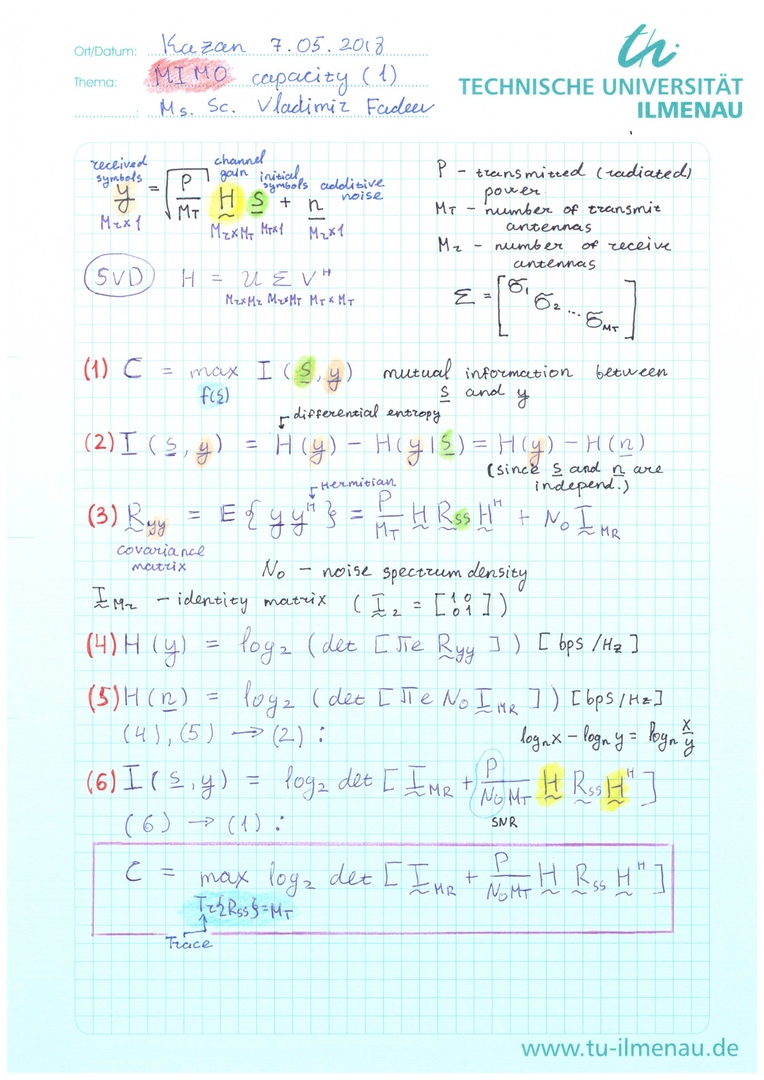 Ort/Datum: Kazan 7.05.2018
Thema: MIMO capacity (1)
Ms. Sc. Vladimir Fadeev
th
TECHNISCHE UNIVERSITÄT
ILMENAU
received symbols
channel gain
initial symbols
additive noise
y = √(P/MT) H s + n
Mr×1 Mr×MT MT×1 Mr×1
P - transmitted (radiated) power
MT - number of transmit antennas
Mr - number of receive antennas
SVD H = U Σ V^H
Mr×Mr Mr×MT MT×MT
Σ = [σ1 σ2 ... σMT]
(1) C = max I (s, y) mutual information between
f(s) s and y
differential entropy
(2) I (s, y) = H(y) - H(y|s) = H(y) - H(n)
(since s and n are
independ.)
Hermitian
(3) Ryy = E{y y^H} = P/MT H Rss H^H + N0 I MR
covariance
matrix
N0 - noise spectrum density
I Mr - identity matrix (I2 = [1 0 0 1])
(4) H(y) = log2 (det [πe Ryy]) [bps/Hz]
(5) H(n) = log2 (det [πe N0 I MR]) [bps/Hz]
(4), (5) → (2) : logn x - logn y = logn x/y
(6) I (s, y) = log2 det [I MR + P/N0MT H Rss H^H]
SNR
(6) → (1) :
C = max log2 det [I MR + P/N0MT H Rss H^H]
Tr{Rss}=MT
Trace
www.tu-ilmenau.de